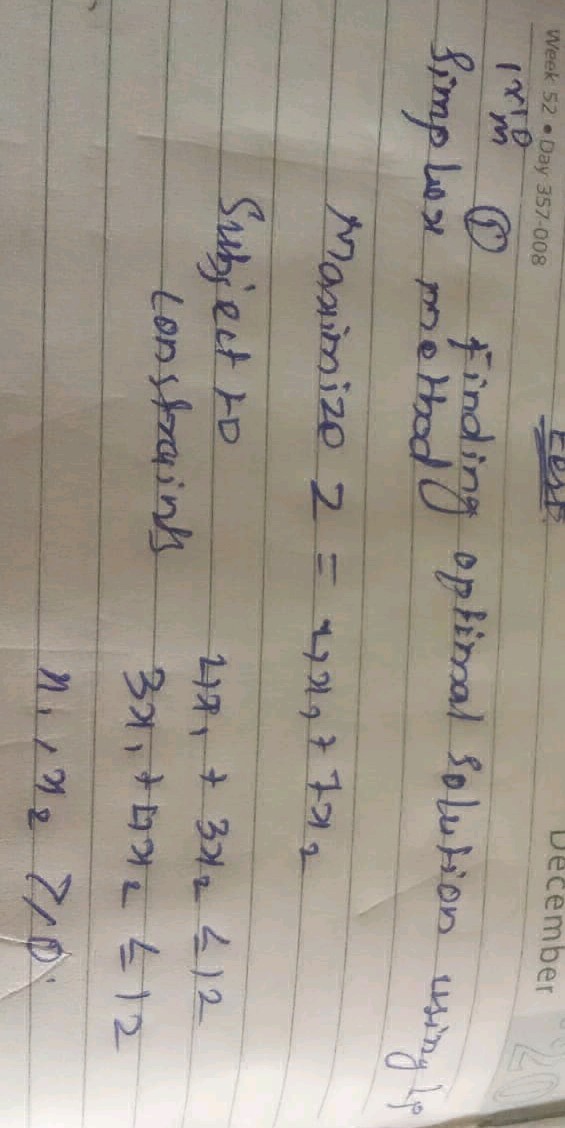 Week 52 • Day 357-008
December
20
Test
1x10m
① Finding optimal solution using Lp
simplex method
Maximize Z = 4x₁ + 7x₂
Subject to
constraints
4x₁ + 3x₂ ≤ 12
3x₁ + 4x₂ ≤ 12
x₁, x₂ ≥ 0.